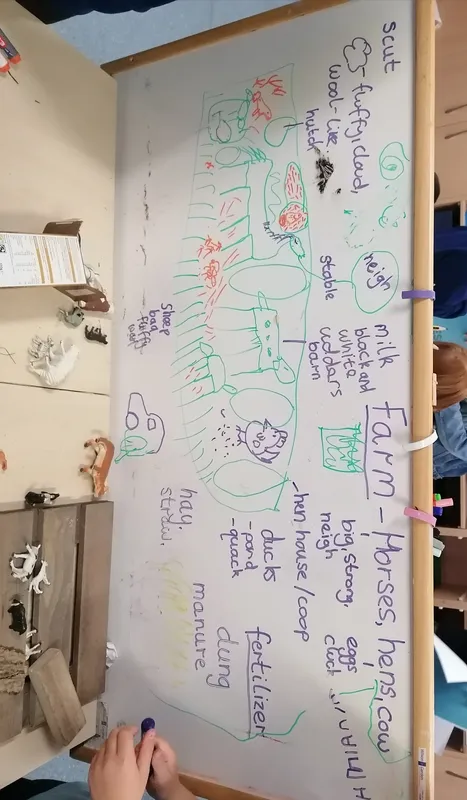 Farm - Horses, hens, cow
scut
fluffy, cloud,
wool-like
hutch
neigh
stable
milk
black and
white
uddars
barn
big, strong,
neigh
eggs
cluck
- hen house/coop
ducks
- pond
- quack
fertilizer
dung
manure
hay
straw.
Sheep
baa
fluffy